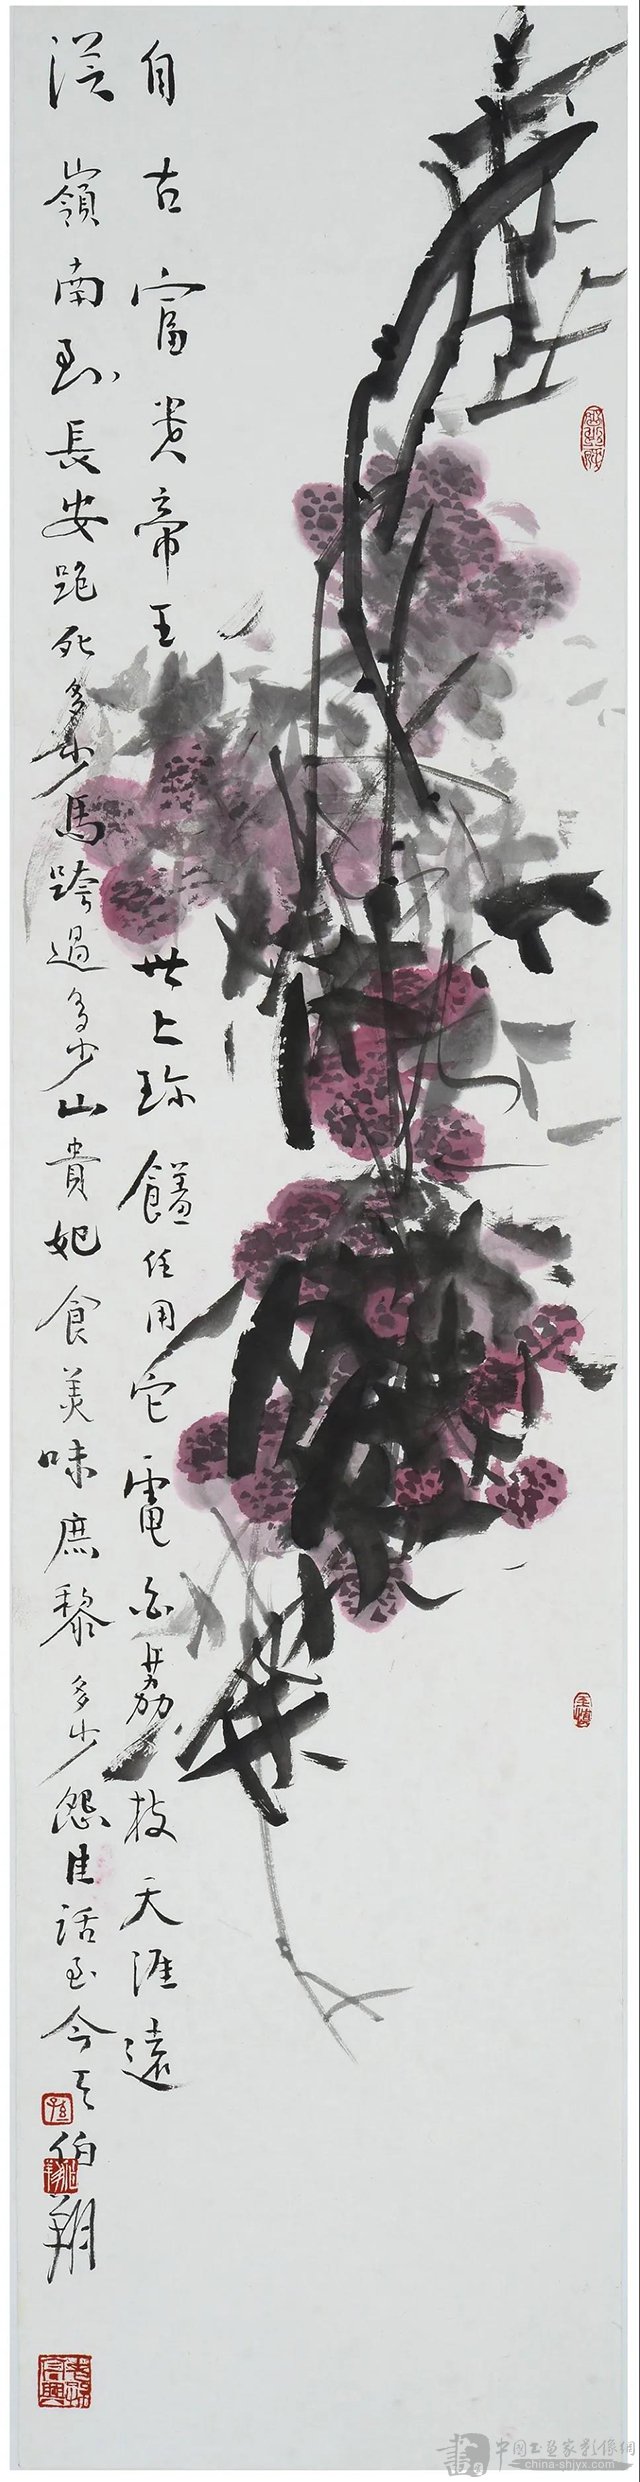 自古富貴帝王世上珍饈任用它電白荔枝天涯遠
從嶺南到長安跑死多少馬跨過多少山貴妃食美味庶黎多少怨佳話至今天伯翔
中國書畫家影像網
china-shjyx.com